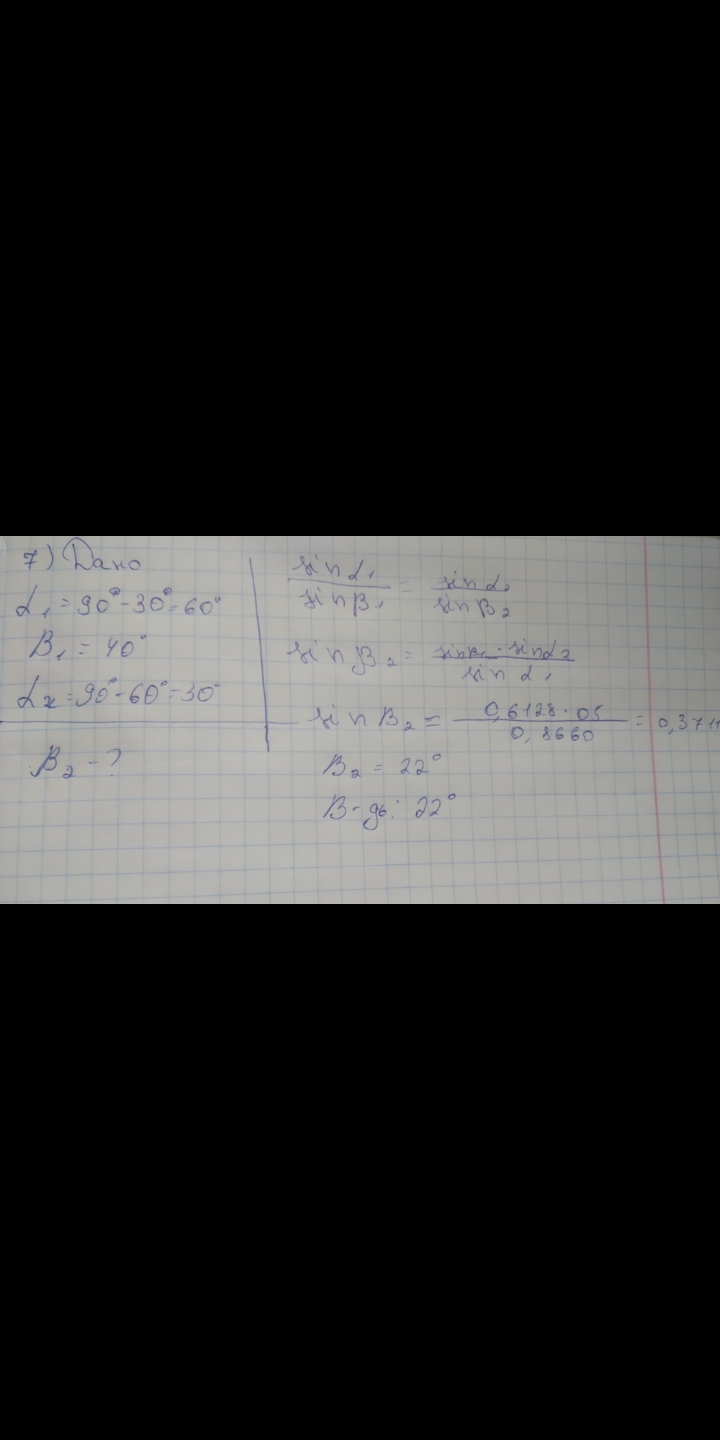 7) Дано
α₁ = 90° - 30° = 60°
B₁ = 40°
α₂ = 90° - 60° = 30°
β₂ - ?
sin α₁ / sin β₁ = sin α₂ / sin β₂
sin β₂ = sin β₁ · sin α₂ / sin α₁
sin B₂ = 0,6128 · 05 / 0,8660 = 0,3711
B₂ = 22°
В-дь: 22°